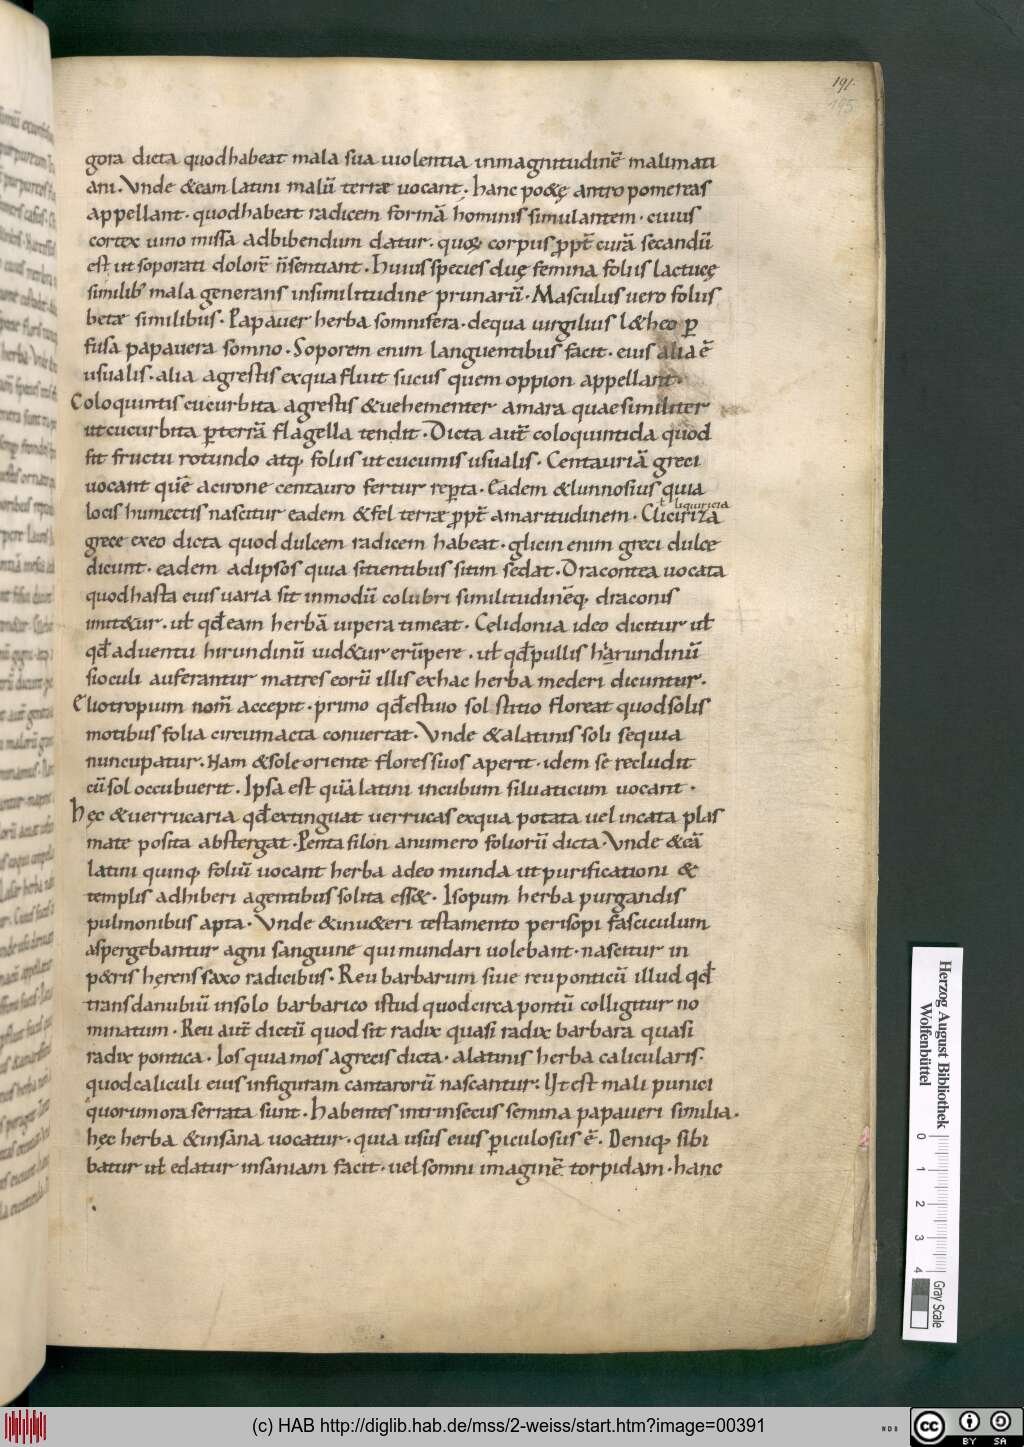 191.
195
gora dicta quodhabeat mala sua uiolentia inmagnitudinē malimati
ani. Vnde &eam latini malū terræ uocant; hanc po&ę antropomereas
appellant. quodhabeat radicem formā hominis simulantem. cuius
cortex uino missa adbibendum datur. quoꝝ corpus ꝓpt̄ curā secandū
est ut soporati dolorē n̄sentiant. Huius species duę femina foliis lactucę
similib; mala generans insimilitudine prunarū. Masculus uero foliis
betæ similibus. Papauer herba somnifera. dequa uirgilius l&heo ꝑ
fusa papauera somno. Soporem enim languentibus facit. eius alia ē
usualis. alia agrestis exqua fluit sucus quem oppion appellant.
Coloquintis cucurbita agrestis &uehementer amara quae similiter
ut cucurbita ꝑterrā flagella tendit. Dicta aut̄ coloquintida quod
sit fructu rotundo atq; foliis ut cucumis usualis. Centauriā greci
uocant quē acirone centauro fertur reꝑta. Eadem &lunnosius quia
ł liquiricia
locis humectis nascitur eadem &fel terræ ꝓpt̄ amaritudinem. Cliciriza
grece exeo dicta quod dulcem radicem habeat. glicin enim greci dulce
dicunt. eadem adipsos quia sitientibus sitim sedat. Dracontea uocata
quodhasta eius uaria sit inmodū colubri similitudinēq; draconis
imit&ur. uł qđ eam herbā uipera timeat. Cęlidonia ideo dicitur uł
qđ aduentu hirundinū uid&ur erūpere. uł qđ pullis harundinū
sioculi auferantur matres eorū illis exhac herba mederi dicuntur.
Eliotropium nom̄ accepit. primo qđ estiuo sol stitio floreat quodsolis
motibus folia circumacta conuertat. Vnde &alatinis soli sequia
nuncupatur. Nam &sole oriente flores suos aperit. idem se recludit
cū sol occubuerit. Ipsa est quā latini incubum siluaticum uocant.
hęc &uerrucaria qđ extinguat uerrucas exqua potata uel incata plas
mate posita abstergat. Penta filon anumero foliorū dicta. Vnde &eā
latini quinq; foliū uocant herba adeo munda ut purificationi &
templis adhiberi agentibus solita ess&. Isopum herba purgandis
pulmonibus apta. Vnde &inu&eri testamento perisopi fasciculum
aspergebantur agni sanguine qui mundari uolebant. nascitur in
p&ris hęrens saxo radicibus. Reu barbarum siue reuponticū illud qđ
transdanubiū insolo barbarico istud quodcirca pontū colligitur no
minatum. Reu aut̄ dictū quod sit radix quasi radix barbara quasi
radix pontica. Ios quia mos agrecis dicta. alatinis herba calicularis.
quodcaliculi eius infiguram cantarorū nascantur. Ut est mali punici
quorum ora serrata sunt. Habentes intrinsecus semina papaueri similia.
hęc herba &insana uocatur. quia usus eius ꝑiculosus ē. Deniq; sibi
batur uł edatur insaniam facit. uel somni imaginē torpidam. hanc
Herzog August Bibliothek
Wolfenbüttel
0 1 2 3 4
Gray Scale
(c) HAB http://diglib.hab.de/mss/2-weiss/start.htm?image=00391
WDB
cc BY SA